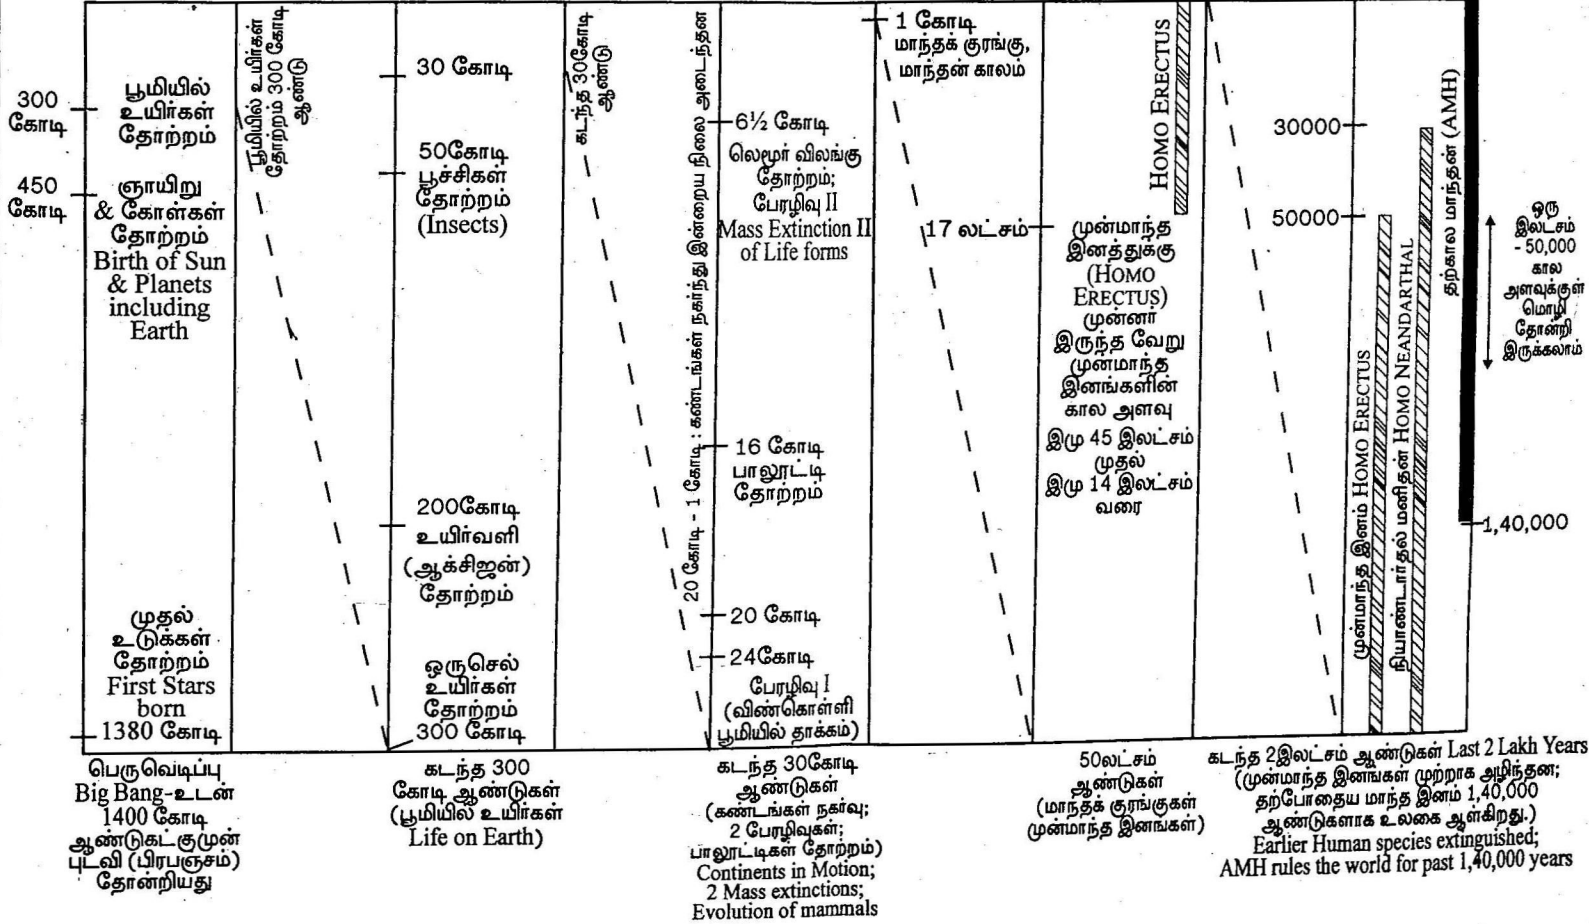 300
கோடி
பூமியில்
உயிர்கள்
தோற்றம்
450
கோடி
ஞாயிறு
& கோள்கள்
தோற்றம்
Birth of Sun
& Planets
including
Earth
முதல்
உடுக்கள்
தோற்றம்
First Stars
born
1380 கோடி
பெருவெடிப்பு
Big Bang-உடன்
1400 கோடி
ஆண்டுகட்குமுன்
புடவி (பிரபஞ்சம்)
தோன்றியது
பூமியில் உயிர்கள்
தோற்றம் 300 கோடி
ஆண்டு
30 கோடி
50கோடி
பூச்சிகள்
தோற்றம்
(Insects)
200கோடி
உயிர்வளி
(ஆக்சிஜன்)
தோற்றம்
ஒருசெல்
உயிர்கள்
தோற்றம்
300 கோடி
கடந்த 300
கோடி ஆண்டுகள்
(பூமியில் உயிர்கள்
Life on Earth)
கடந்த 30கோடி
ஆண்டு
20 கோடி - 1 கோடி : கண்டங்கள் நகர்ந்து இன்றைய நிலை அடைந்தன
6½ கோடி
லெமூர் விலங்கு
தோற்றம்;
பேரழிவு II
Mass Extinction II
of Life forms
16 கோடி
பாலூட்டி
தோற்றம்
20 கோடி
24கோடி
பேரழிவு I
(விண்கொள்ளி
பூமியில் தாக்கம்)
கடந்த 30கோடி
ஆண்டுகள்
(கண்டங்கள் நகர்வு;
2 பேரழிவுகள்;
பாலூட்டிகள் தோற்றம்)
Continents in Motion;
2 Mass extinctions;
Evolution of mammals
1 கோடி
மாந்தக் குரங்கு,
மாந்தன் காலம்
17 லட்சம்
HOMO ERECTUS
முன்மாந்த
இனத்துக்கு
(HOMO
ERECTUS)
முன்னர்
இருந்த வேறு
முன்மாந்த
இனங்களின்
கால அளவு
இமு 45 இலட்சம்
முதல்
இமு 14 இலட்சம்
வரை
50லட்சம்
ஆண்டுகள்
(மாந்தக் குரங்குகள்
முன்மாந்த இனங்கள்)
30000
50000
முன்மாந்த இனம் HOMO ERECTUS
நியாண்டார்தல் மனிதன் HOMO NEANDARTHAL
தற்கால மாந்தன் (AMH)
1,40,000
ஒரு
இலட்சம்
- 50,000
கால
அளவுக்குள்
மொழி
தோன்றி
இருக்கலாம்
கடந்த 2இலட்சம் ஆண்டுகள் Last 2 Lakh Years
(முன்மாந்த இனங்கள் முற்றாக அழிந்தன;
தற்போதைய மாந்த இனம் 1,40,000
ஆண்டுகளாக உலகை ஆள்கிறது.)
Earlier Human species extinguished;
AMH rules the world for past 1,40,000 years